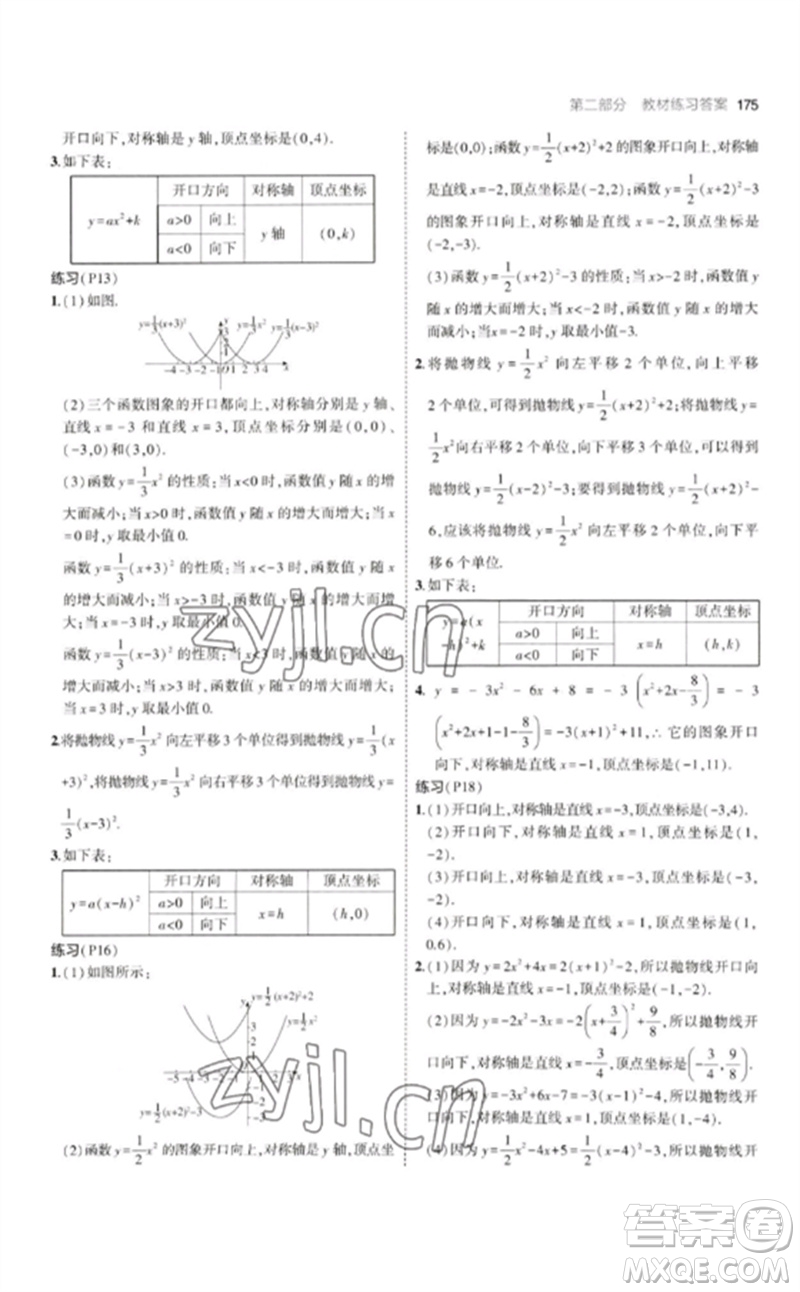 第二部分 教材练习答案 175
开口向下,对称轴是 y 轴,顶点坐标是(0,4).
3.如下表:
y=ax²+k 开口方向 对称轴 顶点坐标
a>0 向上 y 轴 (0,k)
a<0 向下
练习(P13)
1.(1)如图.
y=1/3(x+3)² y=1/3x² y=1/3(x-3)²
(2)三个函数图象的开口都向上,对称轴分别是 y 轴、
直线 x=-3 和直线 x=3,顶点坐标分别是(0,0)、
(-3,0)和(3,0).
(3)函数 y=1/3x² 的性质:当 x<0 时,函数值 y 随 x 的增
大而减小;当 x>0 时,函数值 y 随 x 的增大而增大;当 x
=0 时,y 取最小值 0.
函数 y=1/3(x+3)² 的性质:当 x<-3 时,函数值 y 随 x 的
增大而减小;当 x>-3 时,函数值 y 随 x 的增大而增大;
当 x=-3 时,y 取最小值 0.
函数 y=1/3(x-3)² 的性质:当 x<3 时,函数值 y 随 x 的增
大而减小;当 x>3 时,函数值 y 随 x 的增大而增大;当 x
=3 时,y 取最小值 0.
2将抛物线 y=1/3x² 向左平移 3 个单位得到抛物线 y=1/3(x
+3)²,将抛物线 y=1/3x² 向右平移 3 个单位得到抛物线 y=
1/3(x-3)².
3.如下表:
y=a(x-h)² 开口方向 对称轴 顶点坐标
a>0 向上 x=h (h,0)
a<0 向下
练习(P16)
1.(1)如图所示:
y=1/2(x+2)²+2
y=1/2x²
y=1/2(x+2)²-3
(2)函数 y=1/2x² 的图象开口向上,对称轴是 y 轴,顶点坐
标是(0,0);函数 y=1/2(x+2)²+2 的图象开口向上,对称轴
是直线 x=-2,顶点坐标是(-2,2);函数 y=1/2(x+2)²-3
的图象开口向上,对称轴是直线 x=-2,顶点坐标是
(-2,-3).
(3)函数 y=1/2(x+2)²-3 的性质:当 x<-2 时,函数值 y
随 x 的增大而减小;当 x>-2 时,函数值 y 随 x 的增大
而增大;当 x=-2 时,y 取最小值-3.
2.将抛物线 y=1/2x² 向左平移 2 个单位,向上平移
2 个单位,可得到抛物线 y=1/2(x+2)²+2;将抛物线 y=
1/2x²向右平移 2 个单位,向下平移 3 个单位,可得到
抛物线 y=1/2(x-2)²-3;要得到抛物线 y=1/2(x+2)²-
6,应该将抛物线 y=1/2x² 向左平移 2 个单位,向下平
移 6 个单位.
3.如下表:
y=a(x-h)²+k 开口方向 对称轴 顶点坐标
a>0 向上 x=h (h,k)
a<0 向下
4. y = -3x²-6x+8 = -3(x²+2x-8/3) = -3
(x²+2x+1-1-8/3)=-3(x+1)²+11,∴它的图象开口
向下,对称轴是直线 x=-1,顶点坐标是(-1,11).
练习(P18)
1.(1)开口向上,对称轴是直线 x=-3,顶点坐标是(-3,4).
(2)开口向下,对称轴是直线 x=1,顶点坐标是(1,
-2).
(3)开口向上,对称轴是直线 x=-3,顶点坐标是(-3,
-2).
(4)开口向下,对称轴是直线 x=1,顶点坐标是(1,
0.6).
2.(1)因为 y=2x²+4x=2(x+1)²-2,所以抛物线开口向
上,对称轴是直线 x=-1,顶点坐标是(-1,-2).
(2)因为 y=-2x²-3x=-2(x+3/4)²+9/8,所以抛物线开
口向下,对称轴是直线 x=-3/4,顶点坐标是(-3/4,9/8).
(3)因为 y=-3x²+6x-7=-3(x-1)²-4,所以抛物线开
口向下,对称轴是直线 x=1,顶点坐标是(1,-4).
(4)因为 y=1/2x²-4x+5=1/2(x-4)²-3,所以抛物线开
zyjl.cn
zyjl.cn
答案圈
MXQE.COM